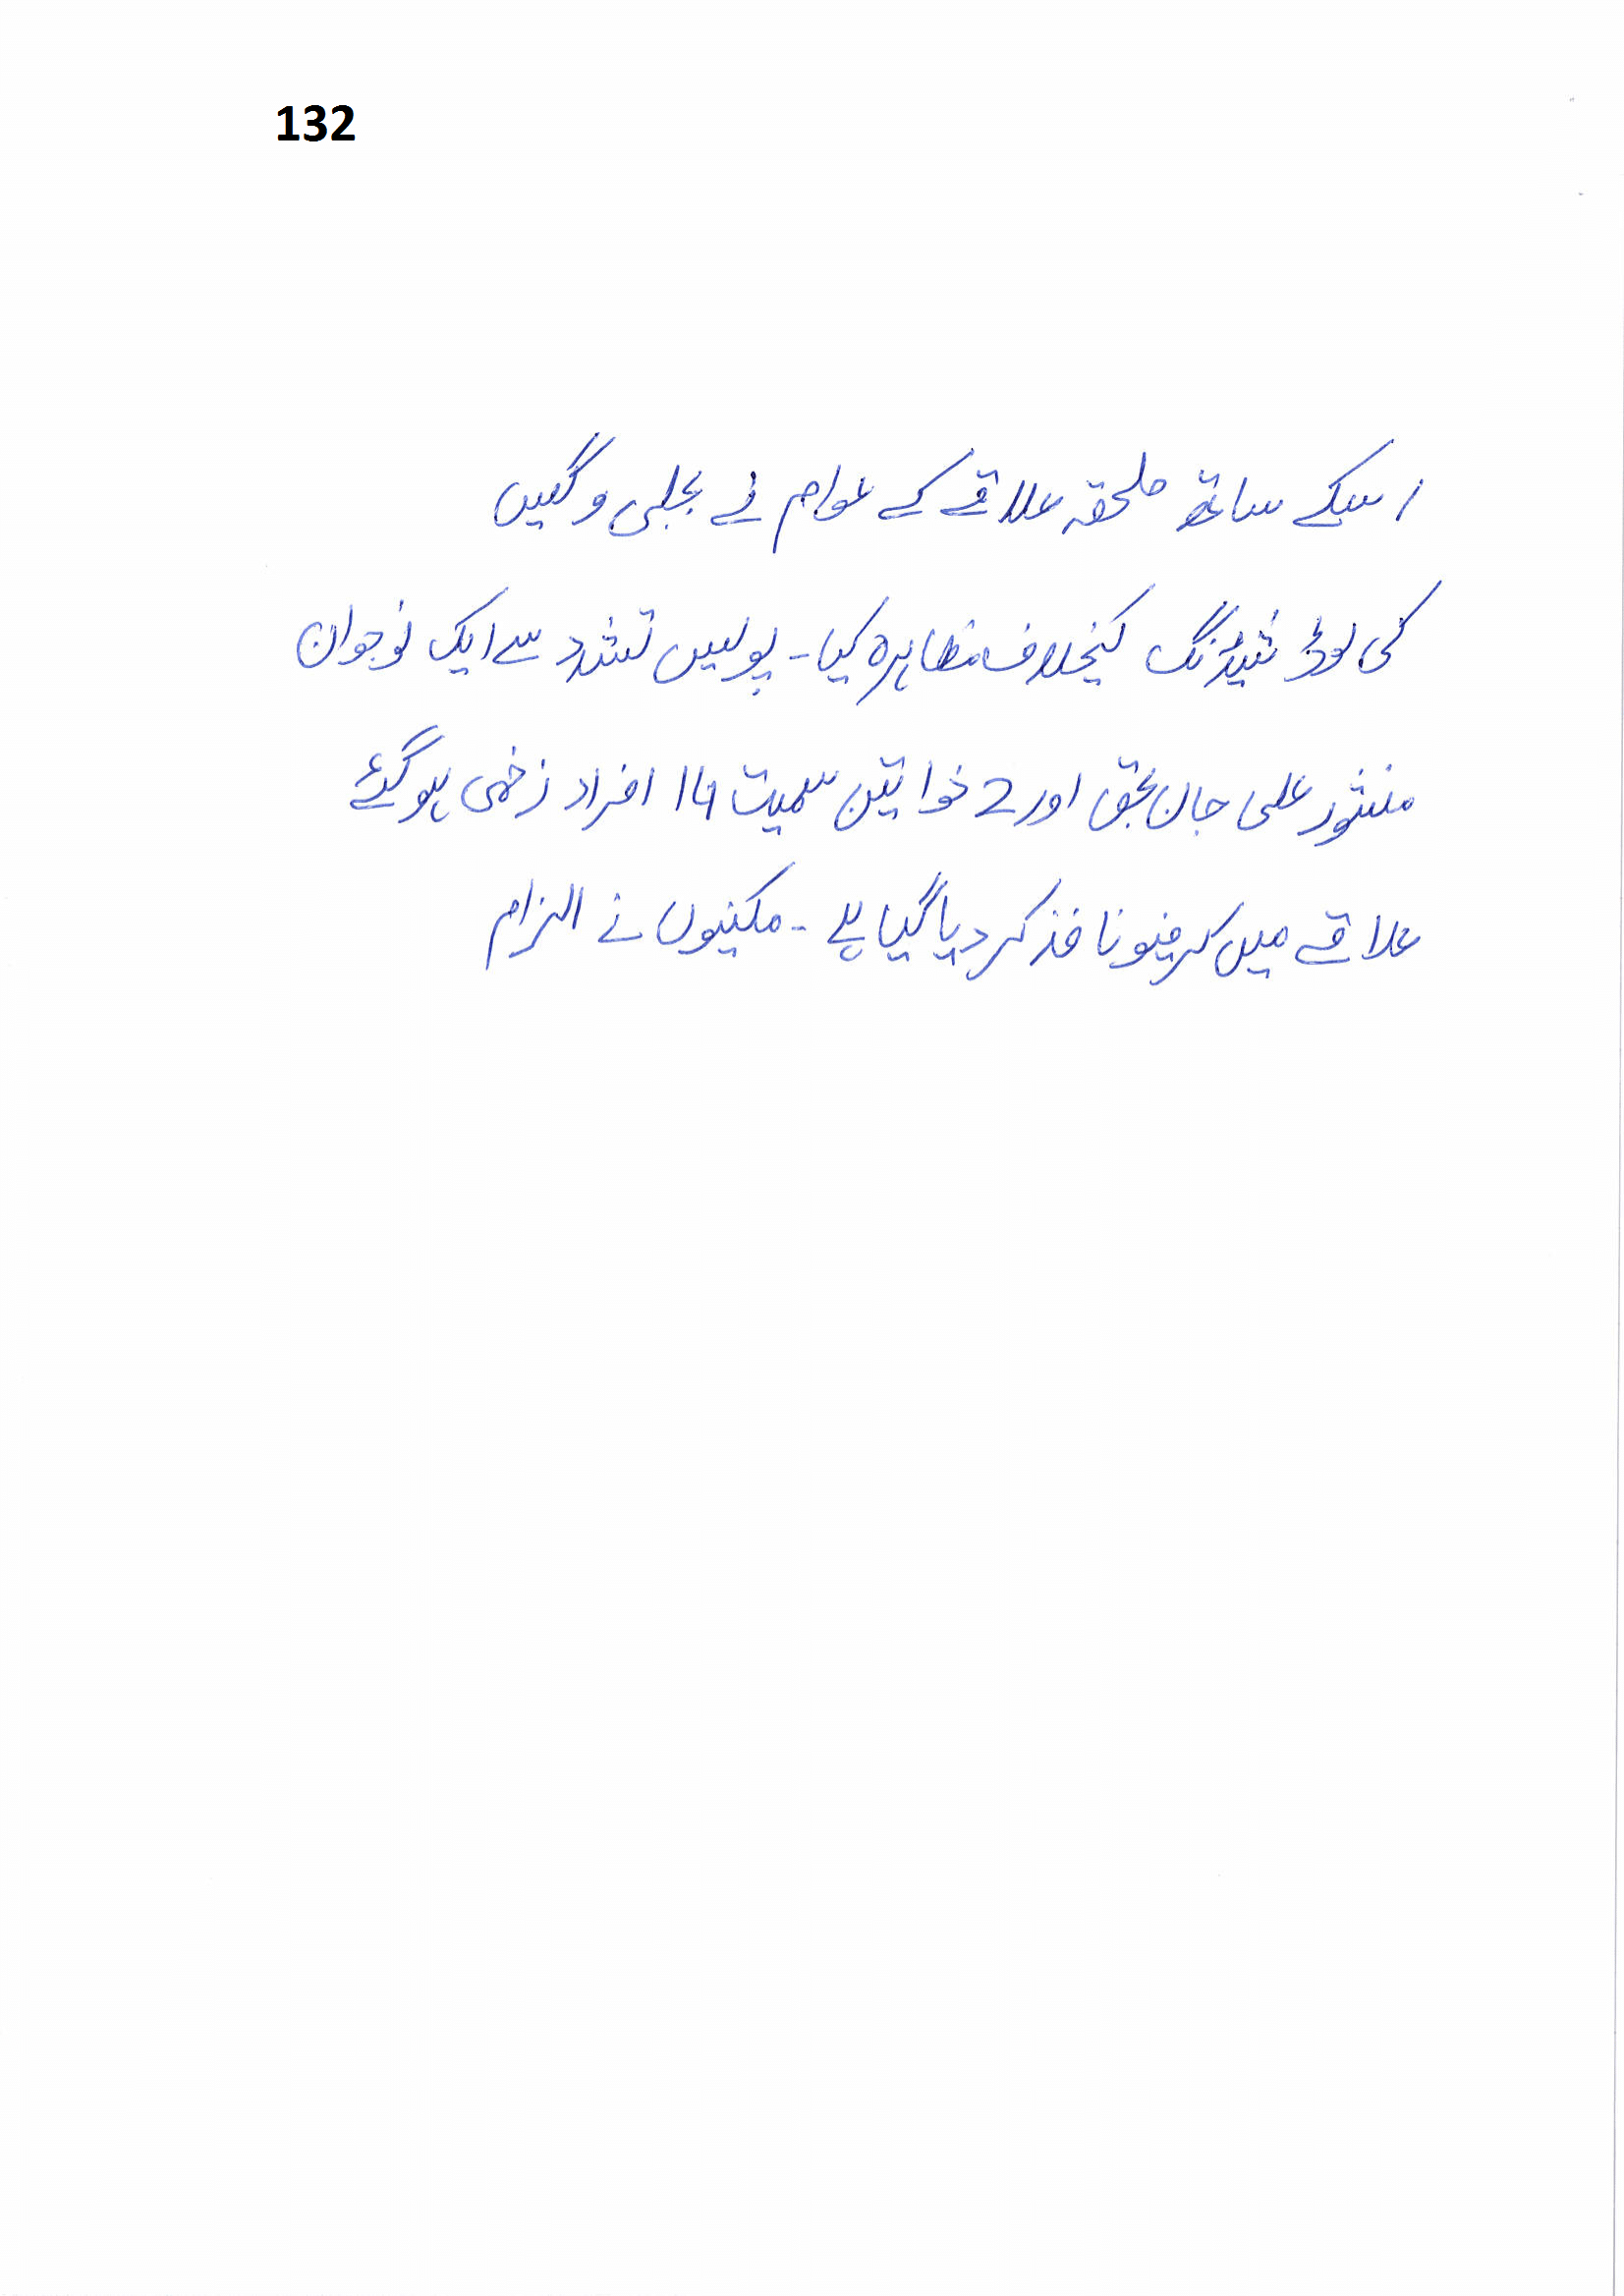 132
اسکے ساتھ ملحقہ علاقے کے عوام نے بجلی و گیس
کی لوڈ شیڈنگ کیخلاف مظاہرہ کیا ۔ پولیس تشدد سے ایک نوجوان
منشور علی جان بحق اور 2 خواتین سمیت 14 افراد زخمی ہوگئے
علاقے میں کرفیو نافذ کر دیا گیا ہے ۔ مکینوں نے الزام